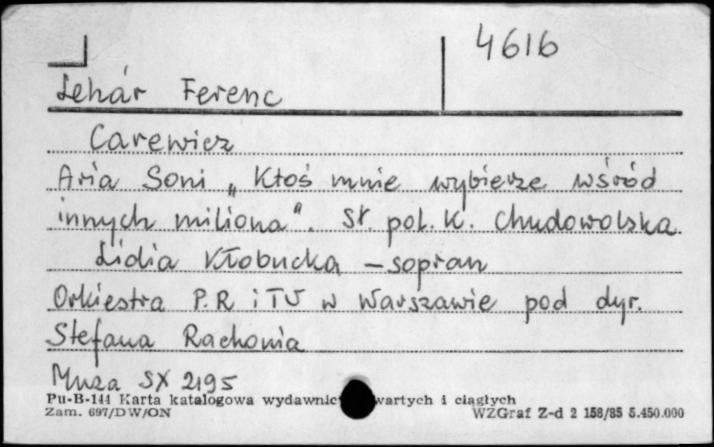 4616
Lehár Ferenc
Carewicz
Aria Soni „Ktoś mnie wybierze wśród
innych miliona". Sł. pol. K. Chudowolska.
Lidia Kłobucka – sopran
Orkiestra P.R i TV w Warszawie pod dyr.
Stefana Rachonia
Muza SX 2195
Pu-B-144 Karta katalogowa wydawnic wartych i ciągłych
Zam. 697/DW/ON WZGraf Z-d 2 158/85 5.450.000